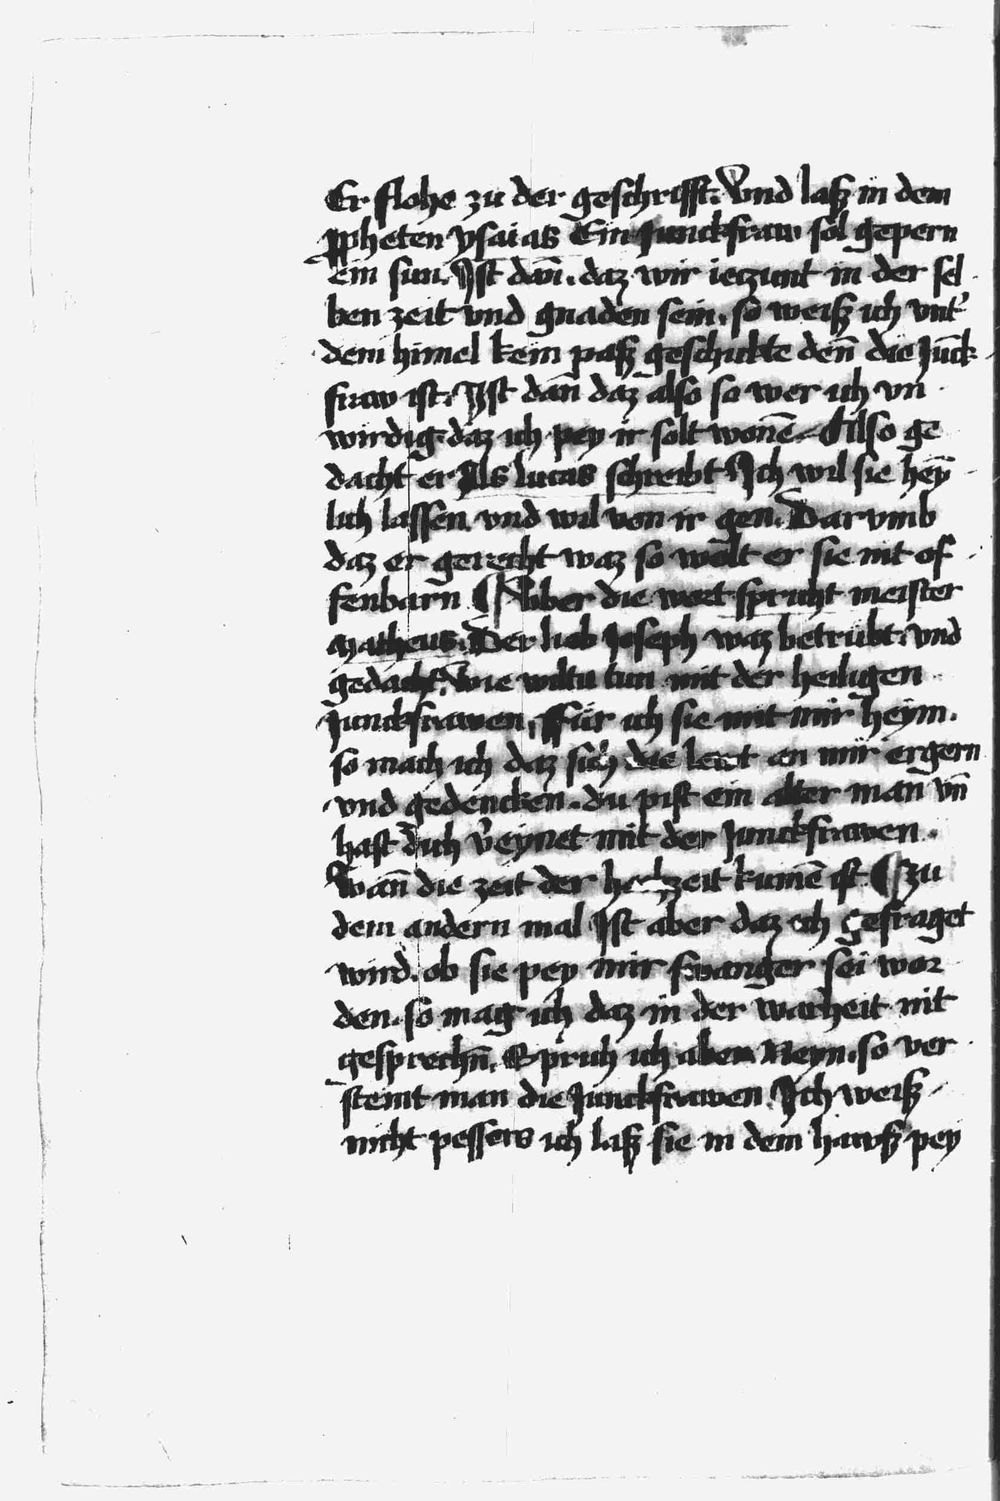 Er flohe zu der geschrifft. Vnd laß in dem
ppheten ysaias Ein Junckfraw sol gepern
ein sun. Jst dañ. daz wir ieczunt in der sel
ben zeit vnd gnaden sein. so weiß ich vnt'
dem himel kein paß geschickte deñ die Jūck
fraw ist. Jst dañ daz also so wer ich vn
wirdig. daz ich pey ir solt wonē Also ge
dacht er Als lucas schreibt Jch wil sie hey̅
lich lassen vnd wil von ir gen. Darvmb
daz er gerecht waz so wolt er sie nit of
fenbarn ¶ Vber die wort spricht meister
Matheus. Der lieb Joseph waz betrübt. vnd
gedacht. wie wiltu tun mit der heiligen
Junckfrawen. Für ich sie mit mir heym.
so mach ich daz sich die lewt an mir ergern
vnd gedencken. du pist ein alter man vñ
hast dich v'eynet mit der Junckfrawen.
Wañ die zeit der hochzeit kumē ist ¶ zu
dem andern mal Jst aber daz ich gefraget
wird. ob sie pey mir swanger sei wor
den. so mag ich daz in der warheit nit
gesprechñ. Sprich ich aber Neyn. so ver
steint man die Junckfrawen. Jch weiß
nicht pessers ich laß sie in dem hawß pey